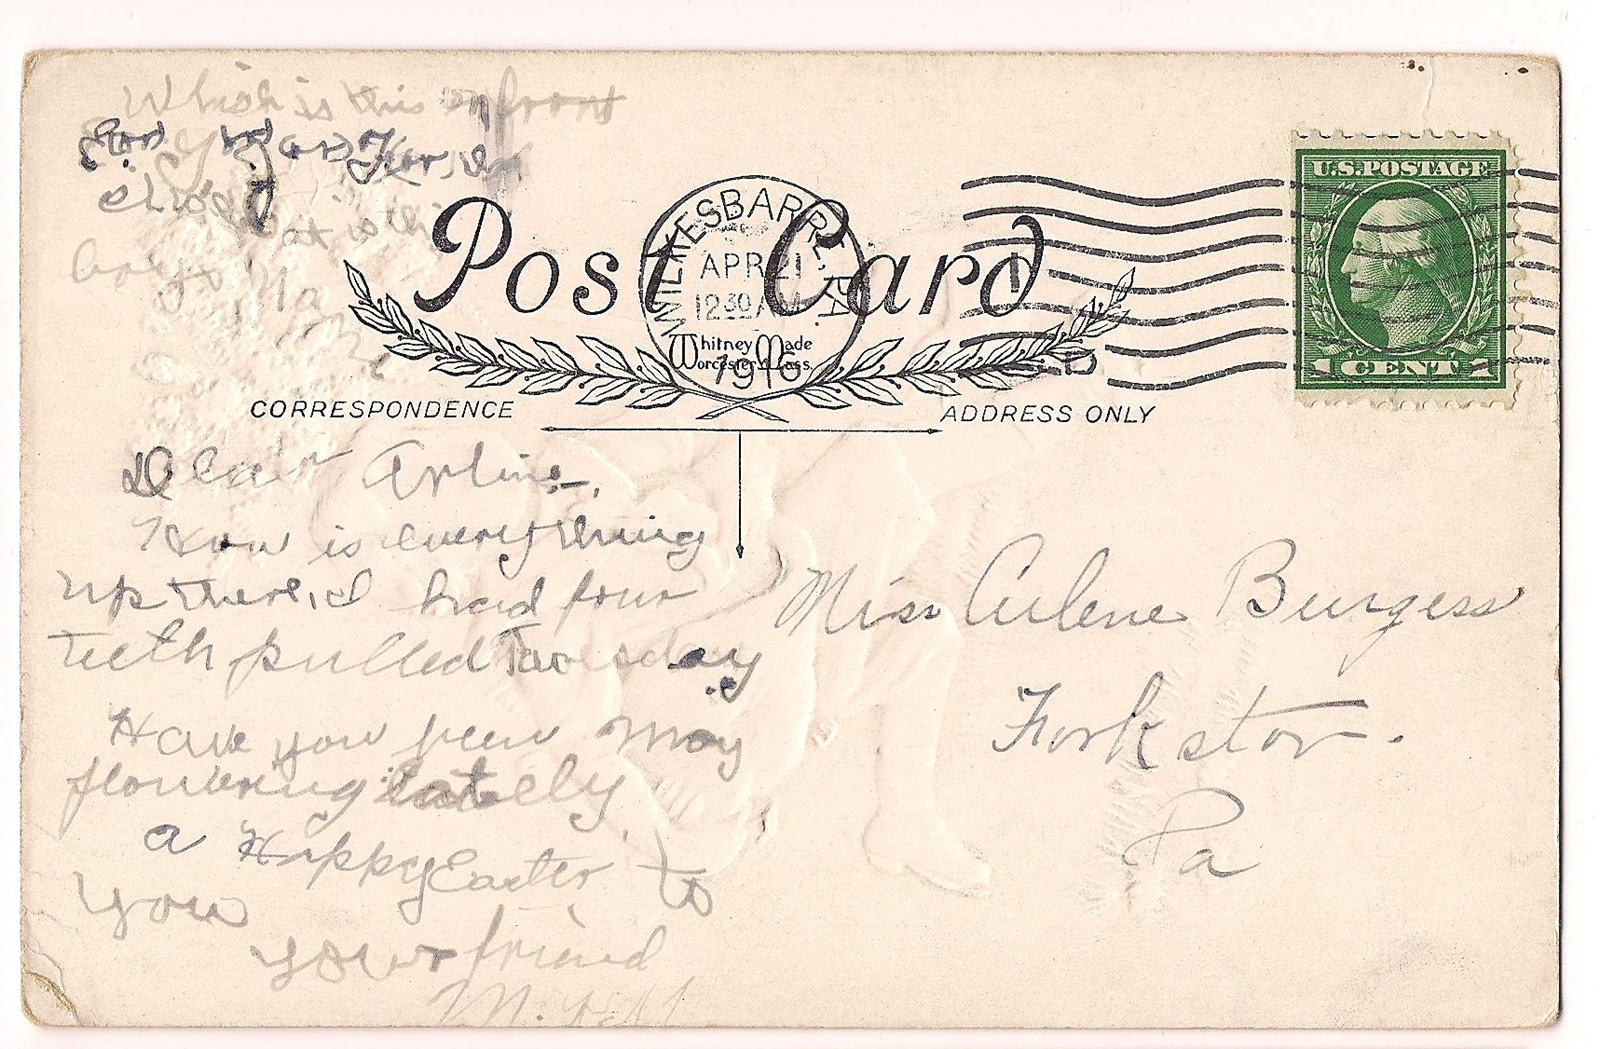 Which is this on front
or
what is the
boys Na
me
U.S. POSTAGE
1 CENT 1
WILKESBARRE, PA.
APR 21
12 30 AM
1916
Post Card
Whitney Made
Worcester Mass.
CORRESPONDENCE
ADDRESS ONLY
Dear Arline,
How is everything
up there, I had four
teeth pulled Tuesday
Have you been May
flowering lately
a Happy Easter to
you
your friend
M.
Miss Arlene Burgess
Forkston.
Pa